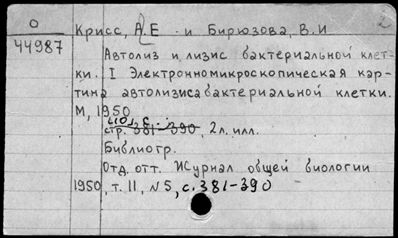 О
44987
Крисс, А.Е. и Бирюзова, В.И
Автолиз и лизис бактериальной клет-
ки. I Электронномикроскопическая кар-
тина автолиза бактериальной клетки.
М, 1950
стр. 381-390, 2 л. илл.
Библиогр.
Отд. отт. Журнал общей биологии
1950, т. 11, N5, с. 381-390